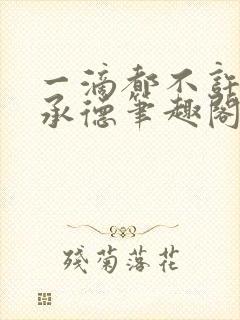 一滴都不許
承德筆趣閣
殘菊落花